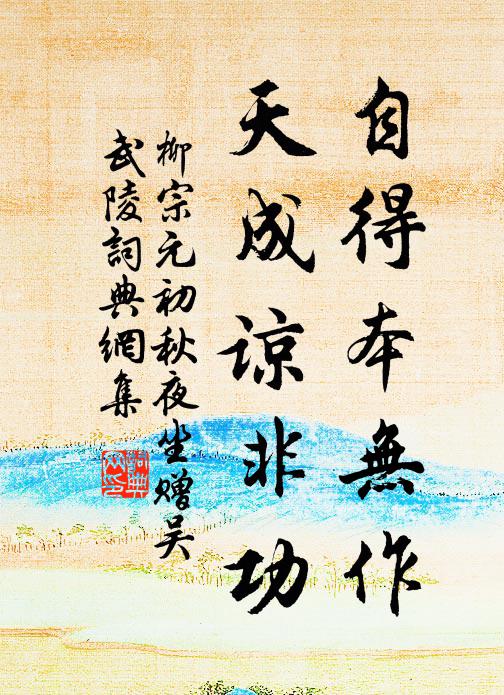 自得本無作
天成谅非功
柳宗元初秋夜坐赠吴
武陵詞典網集